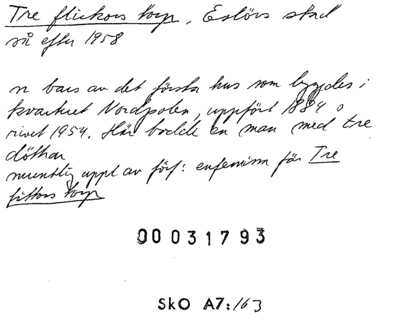 Tre flickors torp, Eslövs stad
så efter 1958
n bars av det första hus som byggdes i
kvarteret Nordpolen, uppfört 1884 o
rivet 1954. Här bodde en man med tre
döttrar
muntlig uppl av förf: eufemism för Tre
fittors torp
00031793
SkO A7:163